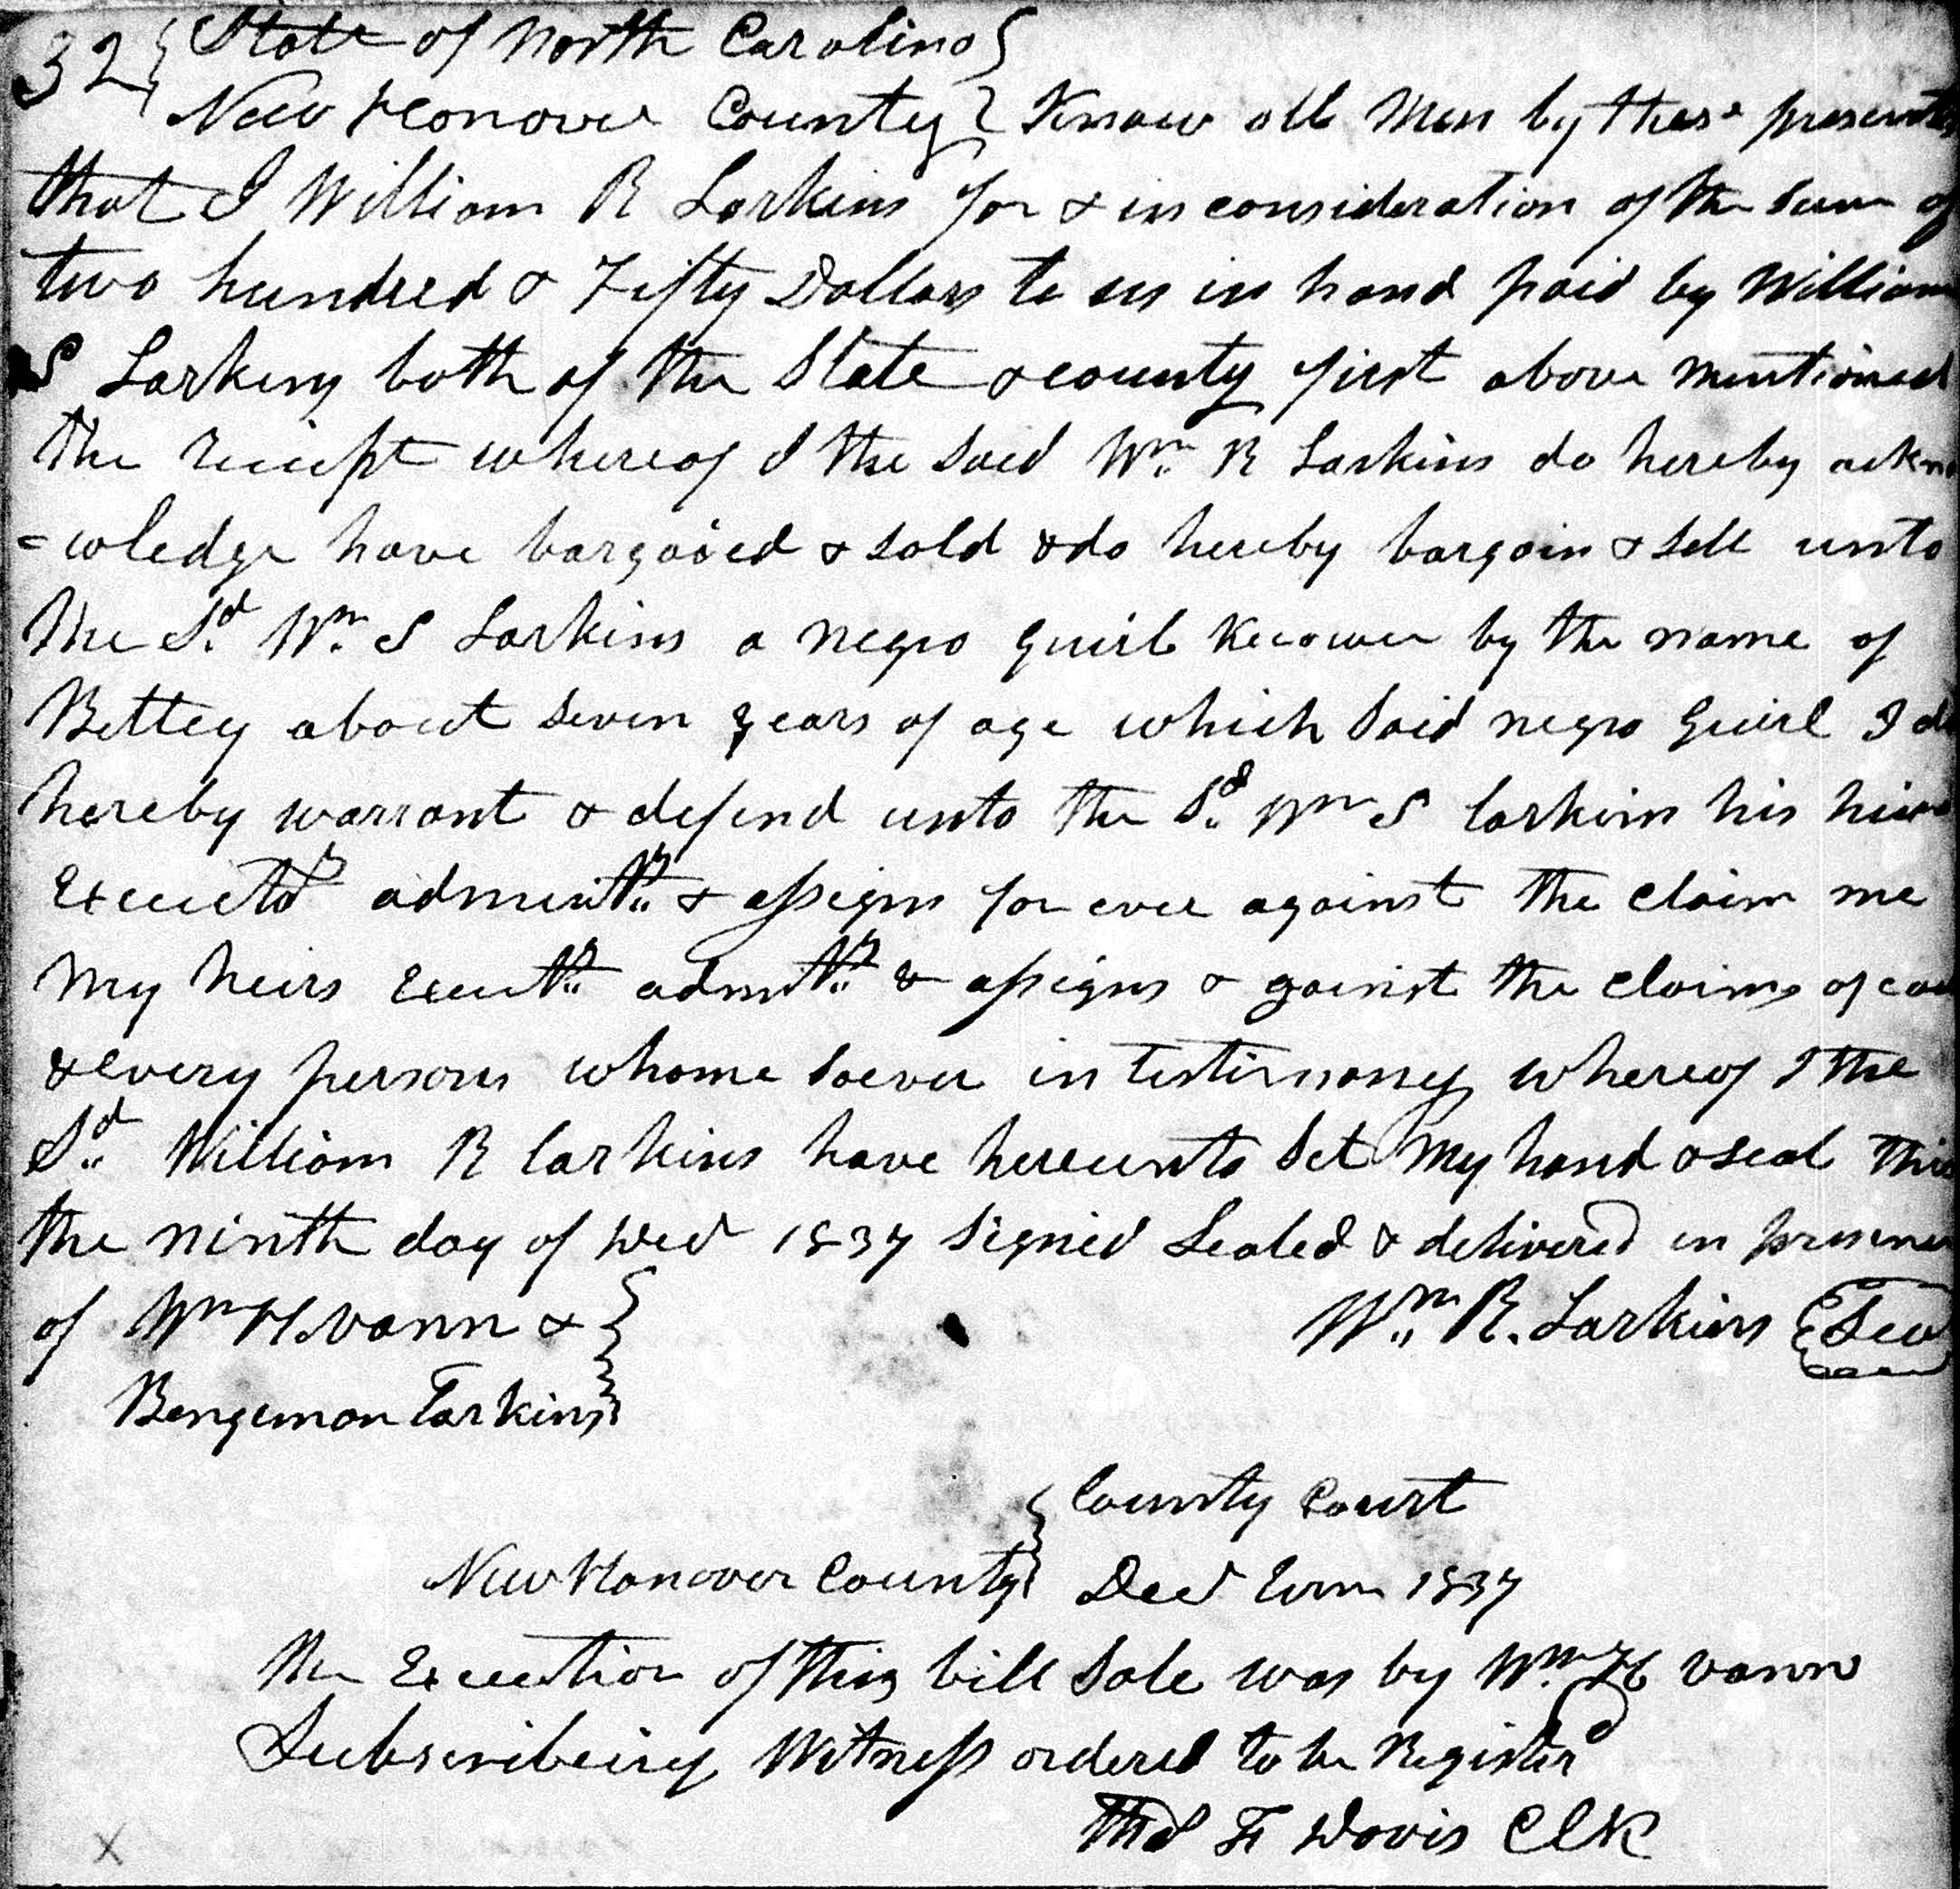 32 State of North Carolina
New Hanover County Know all Men by these presents
that I William R Larkins for & in consideration of the sum of
two hundred & Fifty Dollars to us in hand paid by William
S Larkins both of the State & county first above mentioned
the receipt whereof I the said Wm R Larkins do hereby ackno
=wledge have bargaied & sold & do hereby bargain & sell unto
the Sd Wm S Larkins a negro guirl known by the name of
Bettey about seven years of age which said negro guirl I do
hereby warrant & defend unto the Sd Wm S larkins his heirs
Executrs adminitrs & assigns for ever against the claim me
My heirs Exeutrs admitrs & assigns & gainst the claims of
& every persons whome soever in testimoney whereof I the
Sd William R larkins have hereunto Set My hand & seal this
the ninth day of 1837 signed Sealed & delivered in presence
of Wm H vann &
Wm R. Larkins Seal
Bengemon Larkins
County Court
New Hanover County Term 1837
The Execution of this bill Sale was by Wm H vann
Subscribeing Witness ordered to be Registerd
Thos F Davis Clk
X